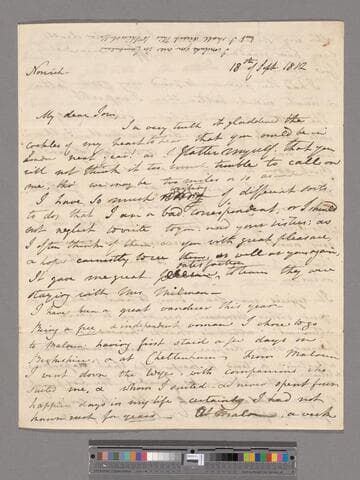 18th of Sept. 1812
Norwich
My dear Tom,
In very truth it gladdened the
cockles of my heart to hear that you would be in
next year; as I flatter myself that you
will not think it too much trouble to call on
me, tho' we may be two miles or so
I have so much writing of different sorts
to do, that I am a bad correspondent, or I should
not neglect to write to you, nor your sisters; as
I often think of them & you with great pleasure,
& hope earnestly to see them as well as you again
It gave me great satisfaction to learn they were
staying with Mrs. Milman—
I have been a great wanderer this year.
Being a free, & independent woman I chose to go
to Malvern having first staid a few days in
& at Cheltenham; From Malvern
I went down the Wye, with companions who
suited me, & whom I suited & never spent four
happier days in my life—certainly I had not
known such for years— At Malvern a week